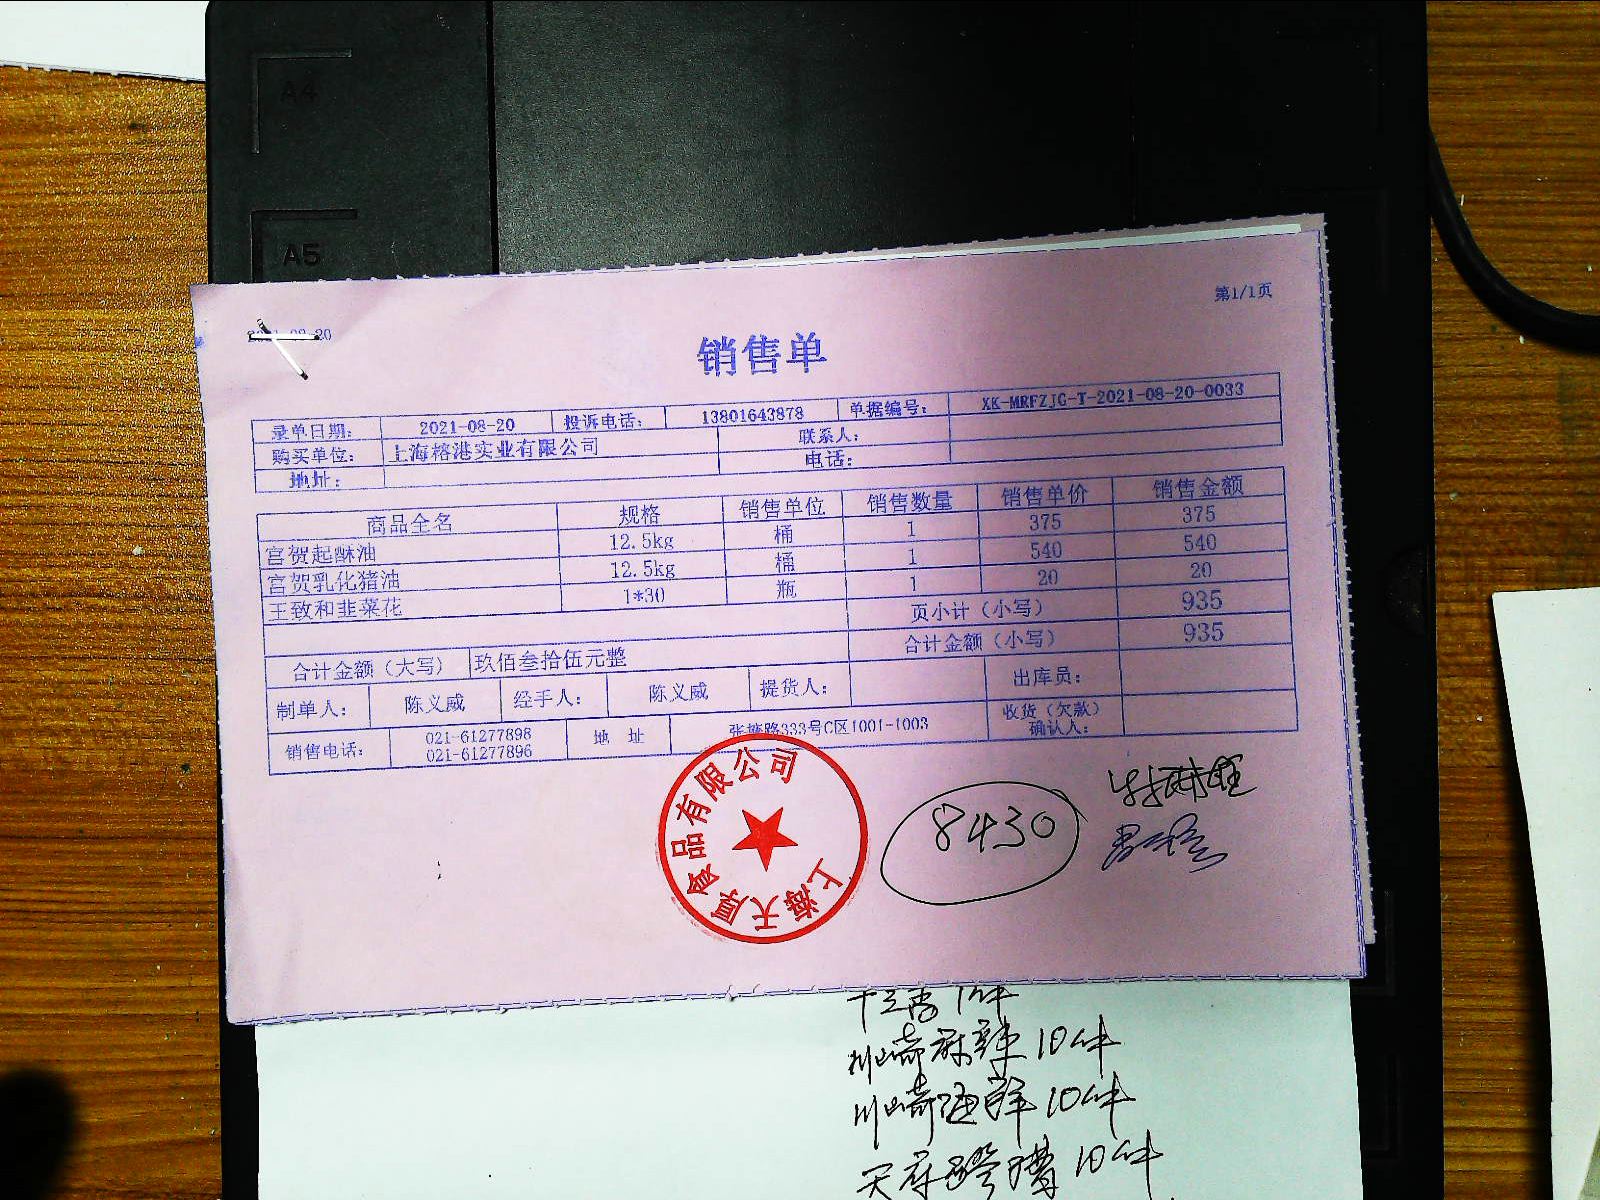 A4
A5
第1/1页
销售单
录单日期: 2021-08-20 投诉电话: 13801643878 单据编号: XK-MRFZJG-T-2021-08-20-0033
购买单位: 上海榕港实业有限公司 联系人:
地址: 电话:
商品全名 规格 销售单位 销售数量 销售单价 销售金额
宫贺起酥油 12.5kg 桶 1 375 375
宫贺乳化猪油 12.5kg 桶 1 540 540
王致和韭菜花 1*30 瓶 1 20 20
页小计（小写） 935
合计金额（大写） 玖佰叁拾伍元整 合计金额（小写） 935
制单人: 陈义威 经手人: 陈义威 提货人: 出库员:
销售电话: 021-61277898 021-61277896 地 址 张掖路333号C区1001-1003 收货（欠款）确认人:
上海天厚食品有限公司
8430
川崎麻辣10件
川崎海鲜10件
10件